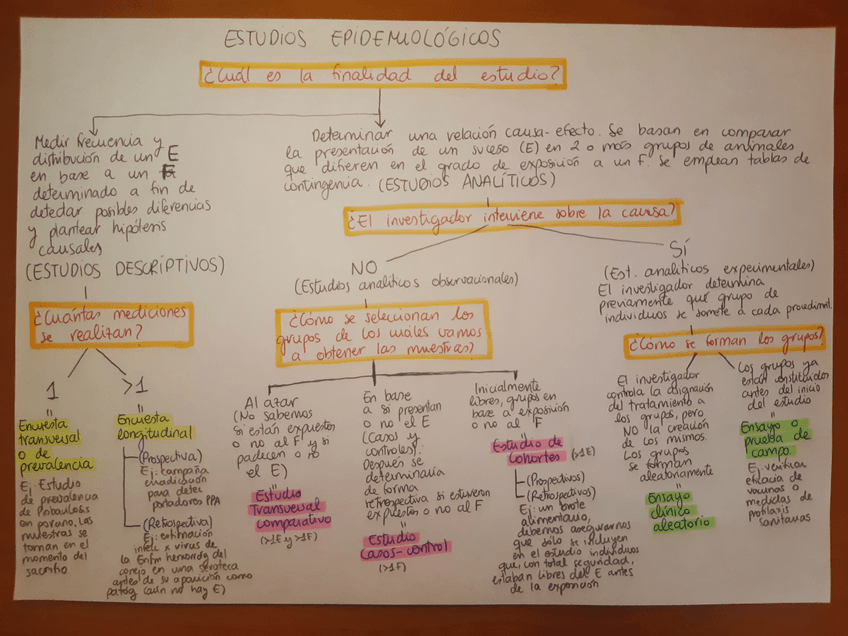 ESTUDIOS EPIDEMIOLÓGICOS
¿Cuál es la finalidad del estudio?
Medir frecuencia y
distribución de un E
en base a un F
determinado a fin de
detectar posibles diferencias
y plantear hipótesis
causales
(ESTUDIOS DESCRIPTIVOS)
¿Cuántas mediciones
se realizan?
1
Encuesta
transversal
o de
prevalencia
Ej: Estudio
de prevalencia
de
en porcino. Las
muestras se
toman en el
momento del
sacrificio
>1
Encuesta
longitudinal
(Prospectiva)
Ej: campaña
erradicación
para detec
portadores PPA
(Retrospectiva)
Ej: estimación
infecc x virus de
la Enfm hemorrág del
conejo en una seroteca
antes de su aparición como
patóg (aún no hay E)
Determinar una relación causa-efecto. Se basan en comparar
la presentación de un suceso (E) en 2 o más grupos de animales
que difieren en el grado de exposición a un F. Se emplean tablas de
contingencia. (ESTUDIOS ANALÍTICOS)
¿El investigador interviene sobre la causa?
NO
(Estudios analíticos observacionales)
¿Cómo se seleccionan los
grupos de los cuáles vamos
a obtener las muestras?
Al azar
(No sabemos
si están expuestos
o no al F y si
padecen o no
el E)
Estudio
transversal
comparativo
(>1E y >1F)
En base
a si presentan
o no el E
(Casos y
controles).
Después se
determinaría
de forma
retrospectiva si estuvieron
expuestos o no al F
Estudio
Casos-control
(>1F)
Inicialmente
libres, grupos en
base a exposición
o no al F
Estudio de
cohortes (>1E)
(Prospectivos)
(Retrospectivos)
Ej: un brote
alimentario,
debemos asegurarnos
que sólo se incluyen
en el estudio individuos
que, con total seguridad,
estaban libres del E antes
de la exposición
SÍ
(Est. analíticos experimentales)
El investigador determina
previamente qué grupo de
individuos se somete a cada procedimnt.
¿Cómo se forman los grupos?
El investigador
controla la asignación
del tratamiento a
los grupos, pero
NO la creación
de los mismos.
Los grupos
se forman
aleatoriamente
Ensayo
clínico
aleatorio
Los grupos ya
están constituidos
antes del inicio
del estudio
Ensayo o
prueba de
campo
Ej: verificar
eficacia de
vacunas o
medidas de
profilaxis
sanitarias